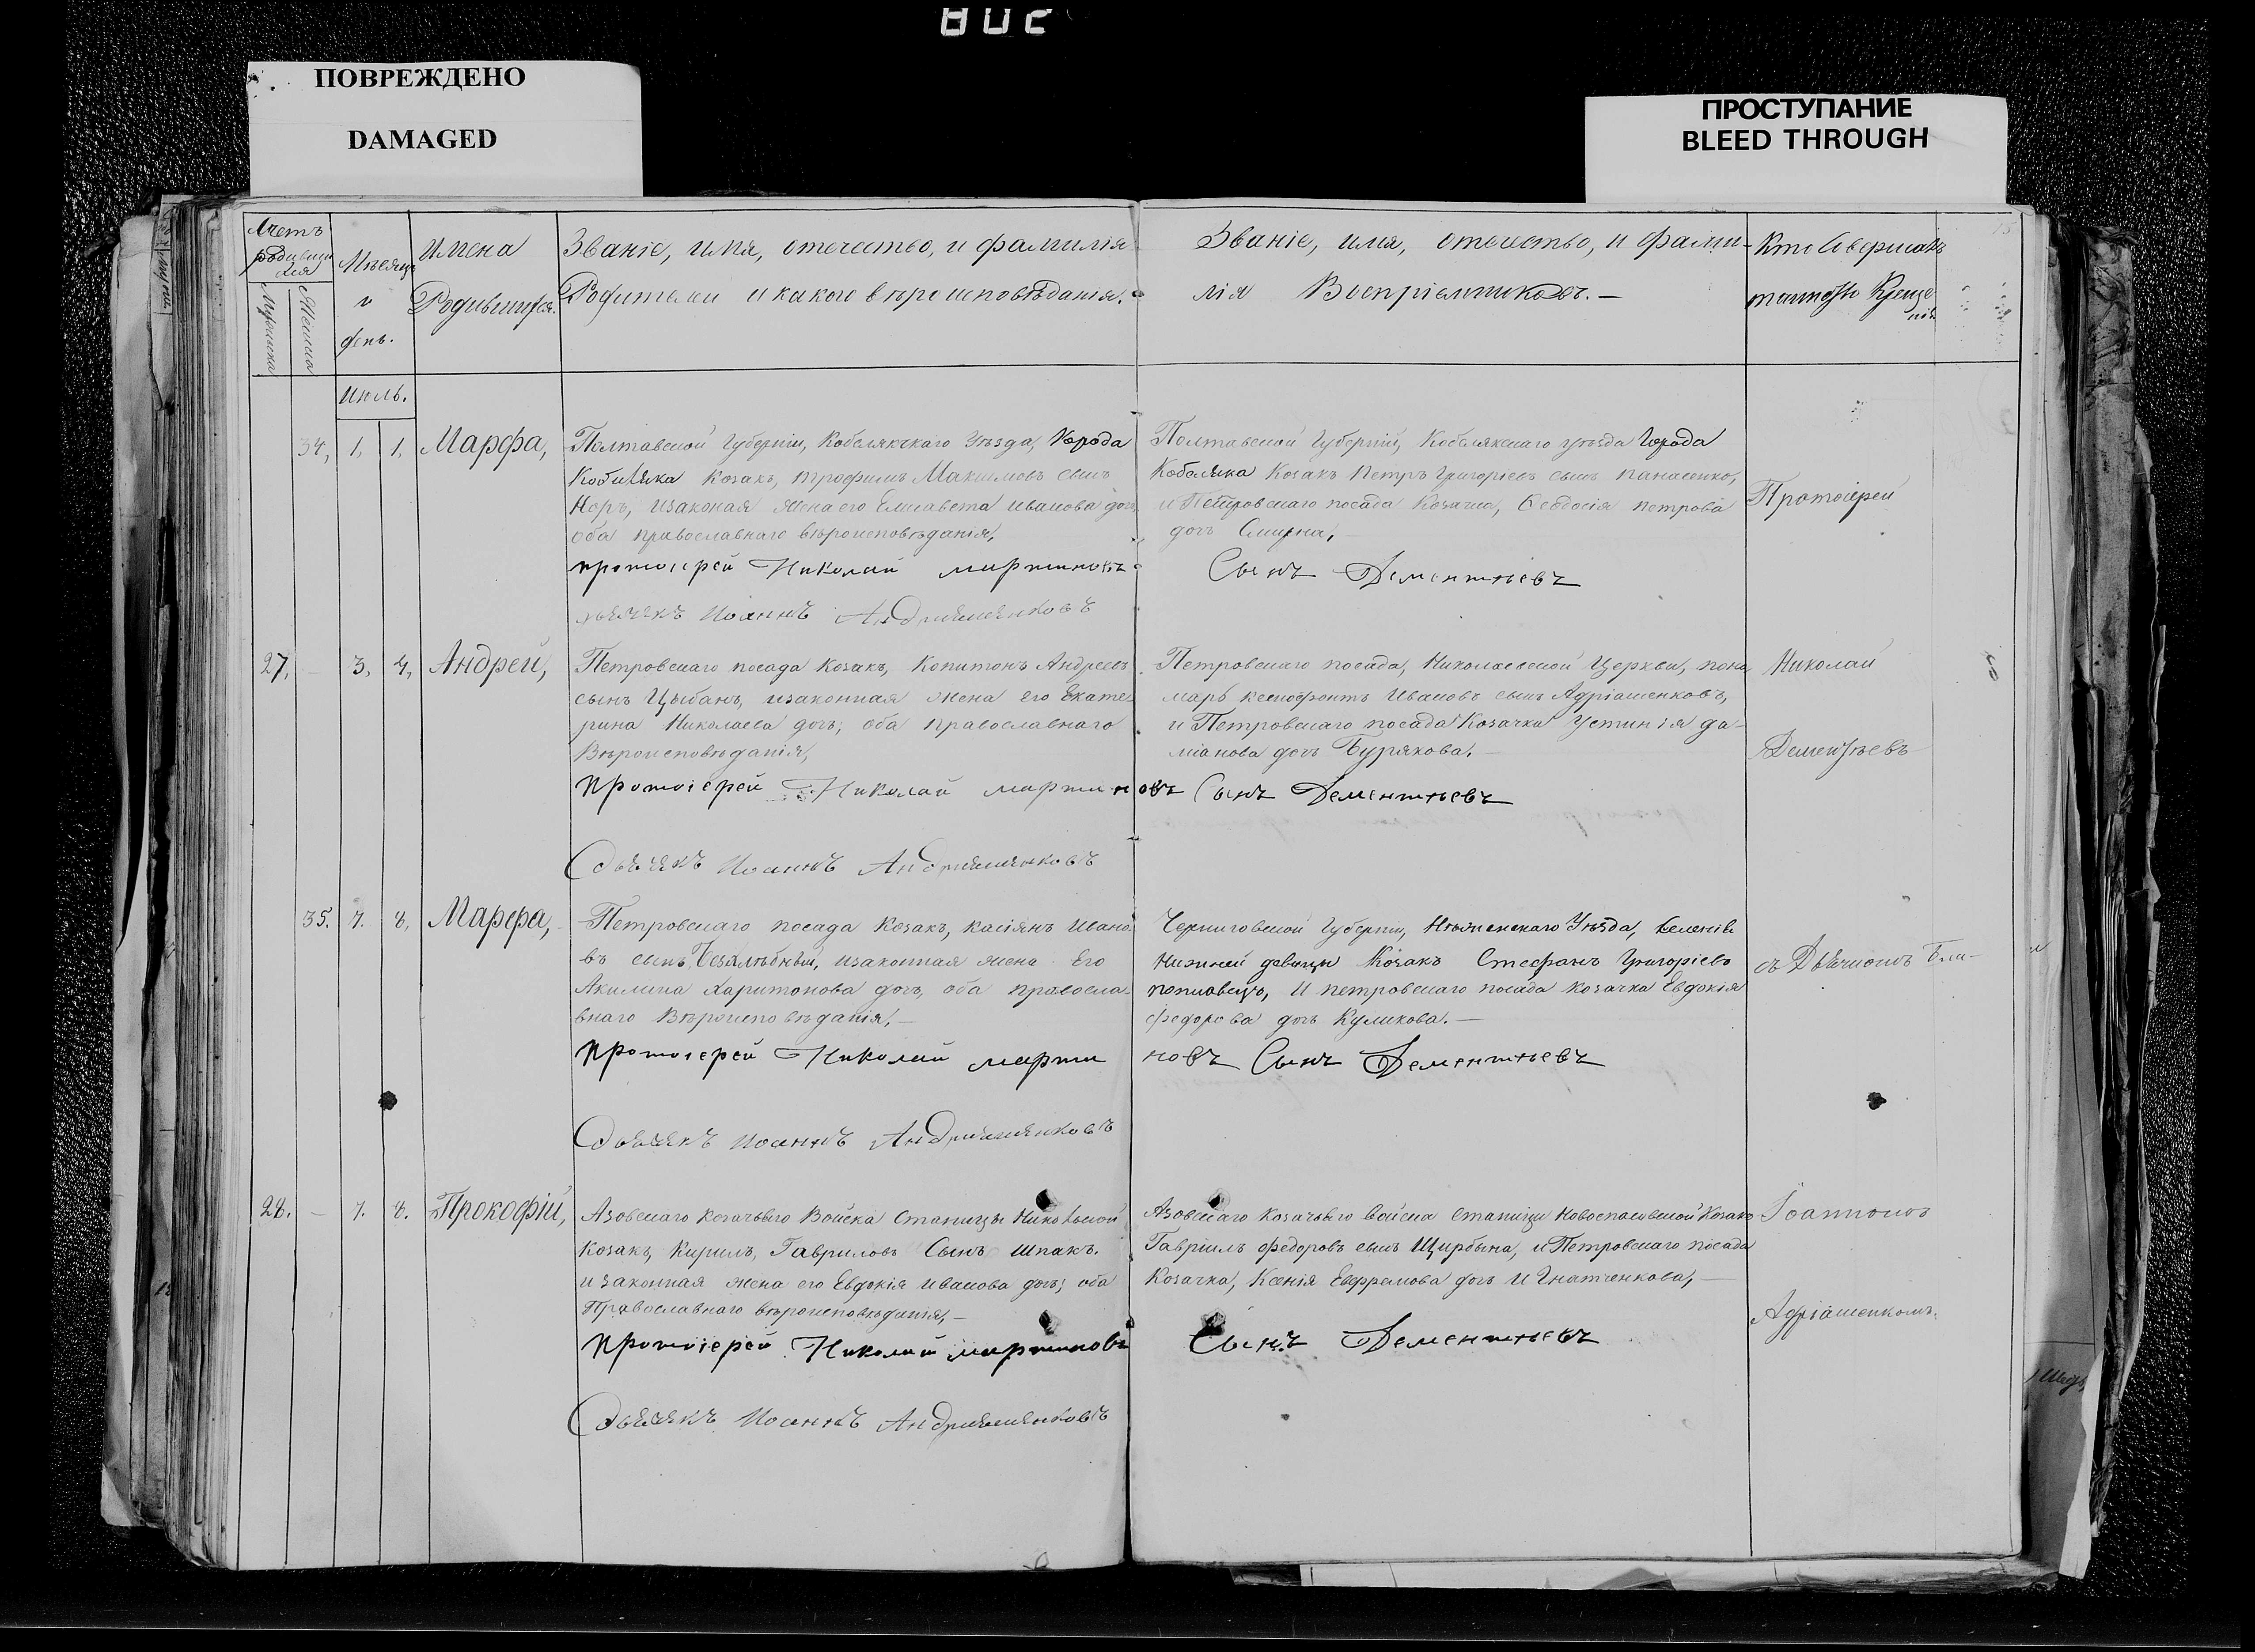 ПОВРЕЖДЕНО
DAMAGED
ПРОСТУПАНИЕ
BLEED THROUGH
Мѣсяцъ и день.
Имена Родившихся.
Званіе, имя, отечество, и фамилія
Родители и какого вѣроисповѣданія.
Званіе, имя, отечество, и фами-
лія Воспріемниковъ. —
Кто Совершалъ
таинство Креще
нія
Мужеска
Женска
Июль.
34, 1, 1, Марфа,
Полтавской Губерніи, Кобелякскаго Уѣзда, Города
Кобиляка Козакъ, Трофимъ Макимовъ сынъ
Норъ, изаконая жена его Елисавета иванова дочь
оба православнаго вѣроисповѣданія,
протоіерей Николай мартиновъ
дьячекъ Иоаннъ Андрияшенковъ
Полтавской Губерніи, Кобелякскаго уѣзда Города
Кобеляка Козакъ Петръ Григоріевъ сынъ панасенко,
и Петровскаго посада Козачка, Ѳеодосія петрова
дочь Смирна,
Сынъ Дементьевъ
Протоіерей
27, — 3, 4, Андрей,
Петровскаго посада Козакъ, Копитонъ Андреевъ
сынъ Цыбань, изаконная жена его Екате-
рина Николаева дочь, оба православнаго
Вѣроисповѣданія,
Протоіерей Николай марти новъ Сынъ Дементьевъ
Дьячекъ Иоаннъ Андрияшенковъ
Петровскаго посада, Николаевской Церкви, поно
марь ксенофонтъ Ивановъ сынъ Адріашенковъ,
и Петровскаго посада Козачка Устинія да-
міанова дочь Бурякова. —
Николай
Дементьевъ
35. 7. 8, Марфа,
Петровскаго посада Козакъ, касіянъ Ивано
въ сынъ, изаконная жена Его
Акилина Харитонова дочь, оба правосла-
внаго Вѣроисповѣданія, —
Протоіерей Николай марти новъ Сынъ Дементьевъ
Дьячекъ Иоаннъ Андрияшенковъ
Черниговской Губерніи, Нѣженскаго Уѣзда,
Нижней девицы Козакъ Стефанъ Григоріевъ
и петровскаго посада козачка Евдокія
федорова дочь Куликова. —
съ Дьячкомъ
28. — 7. 8. Прокофій,
Азовскаго козачьего Войска Станицы Никольской
Козакъ, Кирилъ, Гавриловъ Сынъ Шпакъ.
изаконная жена его Евдокія иванова дочь; оба
Православнаго вѣроисповѣданія, —
Протоіерей Николай мартиновъ Сынъ Дементьевъ
Дьячекъ Иоаннъ Андрияшенковъ
Азовскаго Козачьего войска станици Новоспасовской Козакъ
Гавріилъ федоровъ сынъ Щирбына, и Петровскаго посада
Козачка, Ксенія Евфремова дочь Игнатенкова, —
Іоанномъ
Адріашенкомъ.